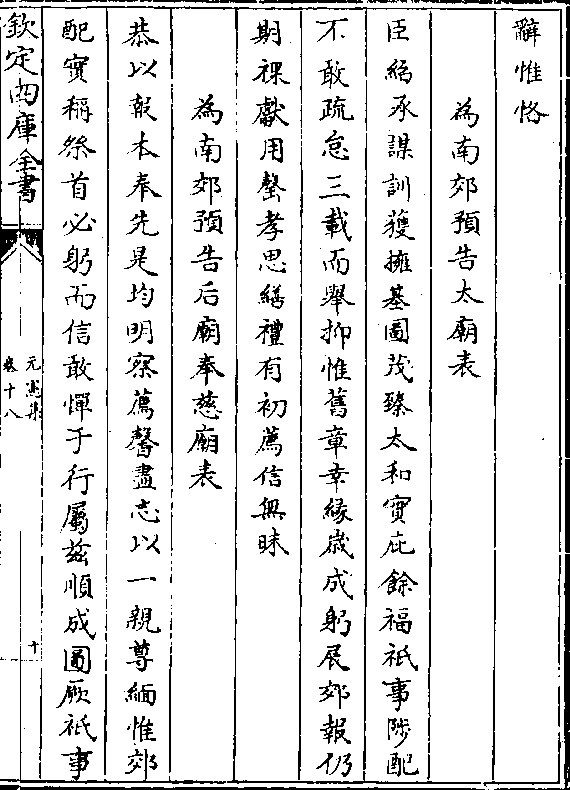 辭惟恪
為南郊預告太廟表
臣紹承謀訓獲擁基圖茂臻太和實庇餘福祇事陟配
不敢疏怠三載而舉抑惟舊章幸緣歲成躬展郊報仍
期祼獻用罄孝思繇禮有初薦信無昧
為南郊預告后廟奉慈廟表
恭以報本奉先是均明察薦馨盡志以一親尊緬惟郊
配實稱祭首必躬而信敢憚于行屬兹順成圖厥祇事
欽定四庫全書
元憲集
卷十八
十